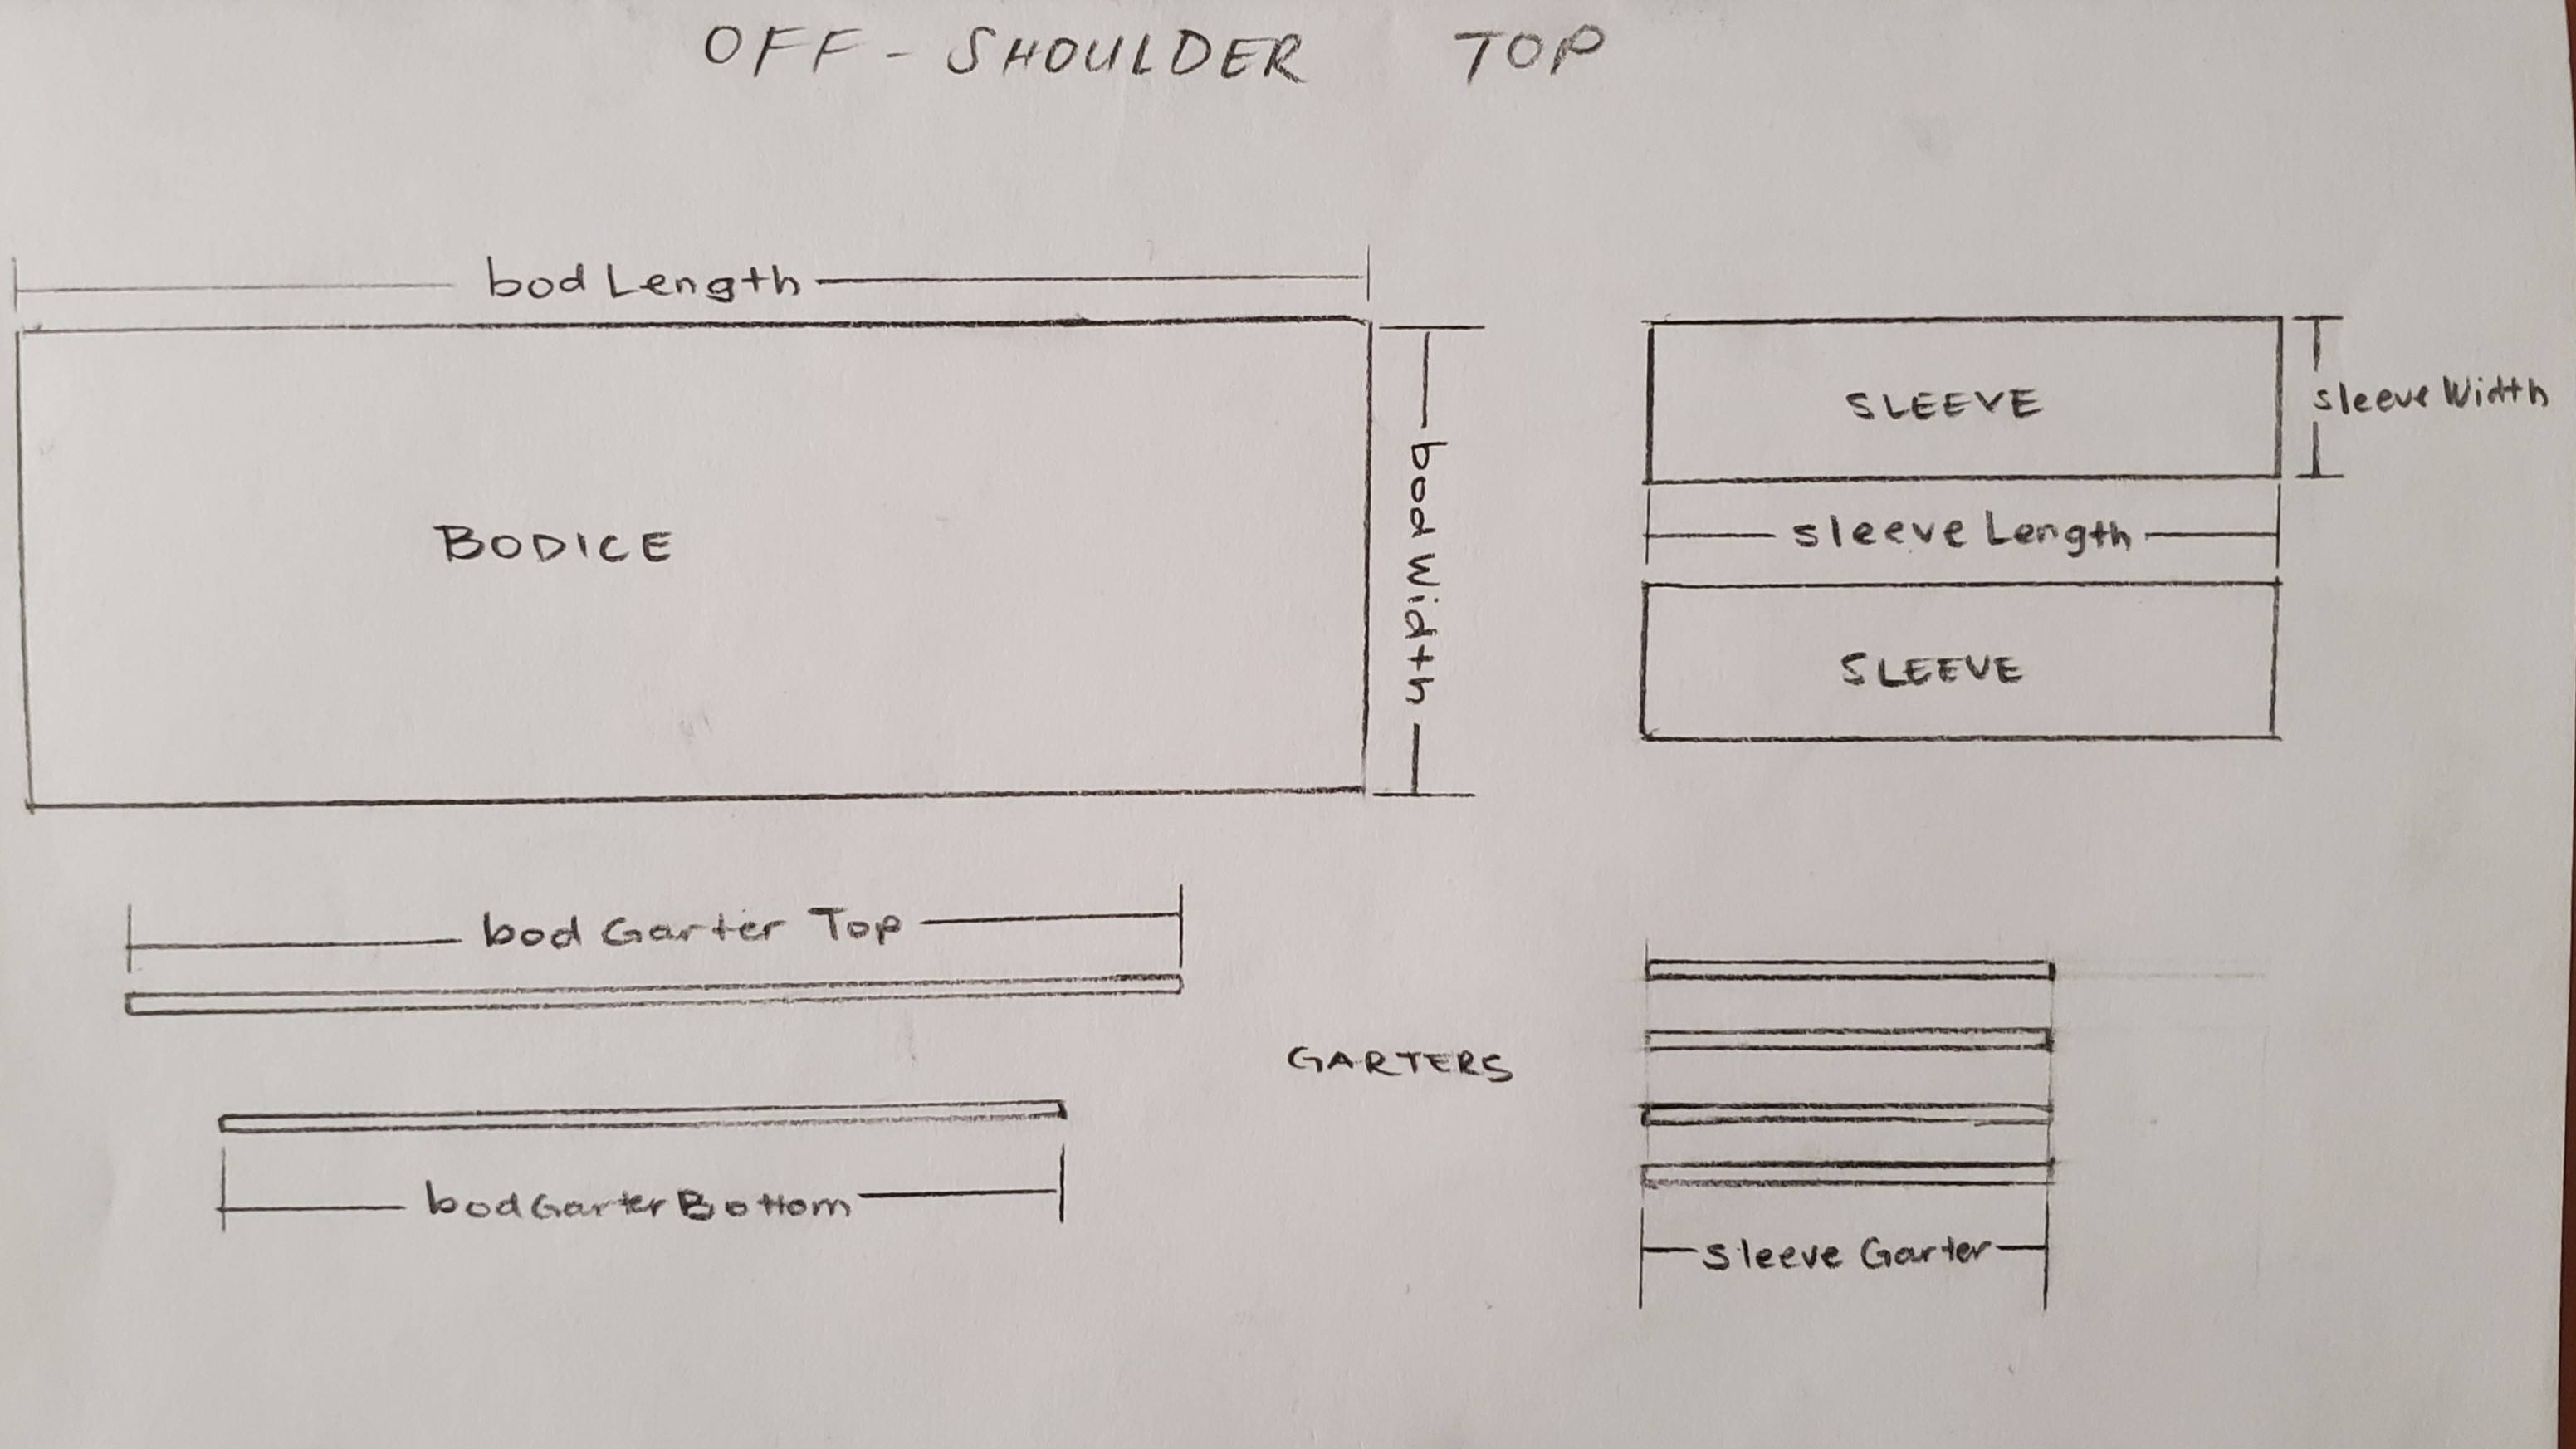 OFF-SHOULDER TOP
bod Length
BODICE
bod Width
SLEEVE
sleeve Width
sleeve Length
SLEEVE
bod Garter Top
GARTERS
bodGarterBottom
sleeve Garter